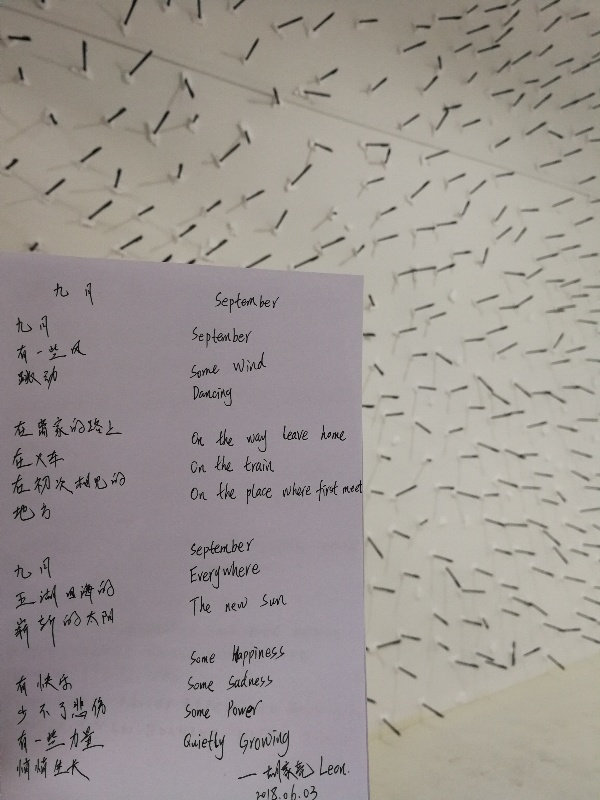 九月
九月
有一些风
跳动
在离家的路上
在火车
在初次相见的
地方
九月
五湖四海的
崭新的太阳
有快乐
少不了悲伤
有一些力量
悄悄生长
September
September
Some Wind
Dancing
On the way leave home
On the train
On the place where first meet
September
Everywhere
The new Sun
Some Happiness
Some Sadness
Some Power
Quietly Growing
— Leon.
2018.06.03